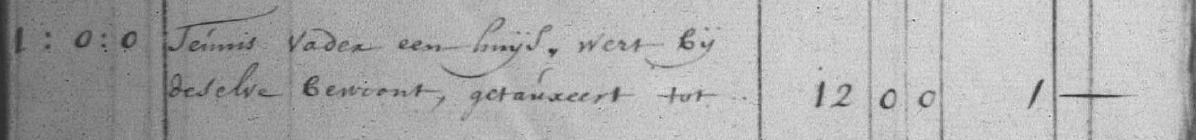 1 : 0 : 0 Teunis Vader een huijs, wert bij
deselve bewoont, getauxeert tot 1200 1 —